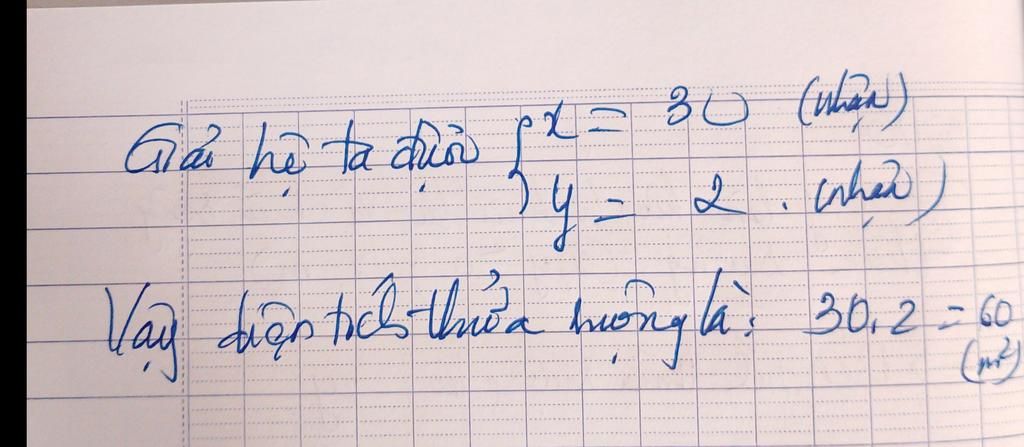 Giải hệ ta được { x = 30 (nhận)
y = 2 . (nhận)
Vậy diện tích thửa ruộng là: 30.2 = 60
(m²)